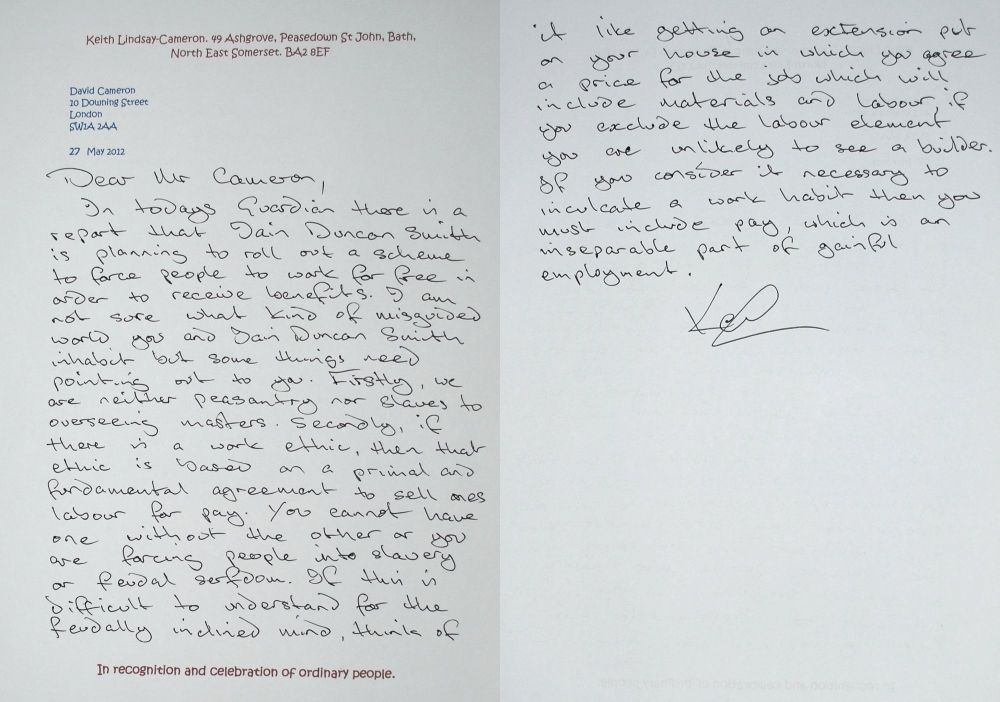 Keith Lindsay-Cameron. 49 Ashgrove, Peasedown St John, Bath,
North East Somerset. BA2 8EF
David Cameron
10 Downing Street
London
SW1A 2AA
27 May 2012
Dear Mr Cameron,
In todays Guardian there is a
report that Iain Duncan Smith
is planning to roll out a scheme
to force people to work for free in
order to receive benefits. I am
not sure what kind of misguided
world you and Iain Duncan Smith
inhabit but some things need
pointing out to you. Firstly, we
are neither peasantry nor slaves to
overseeing masters. Secondly, if
there is a work ethic, then that
ethic is based on a primal and
fundamental agreement to sell ones
labour for pay. You cannot have
one without the other or you
are forcing people into slavery
or feudal serfdom. If this is
difficult to understand for the
feudally inclined mind, think of
In recognition and celebration of ordinary people.
it like getting an extension put
on your house in which you agree
a price for the job which will
include materials and labour, if
you exclude the labour element
you are unlikely to see a builder.
If you consider it necessary to
inculcate a work habit then you
must include pay, which is an
inseparable part of gainful
employment.